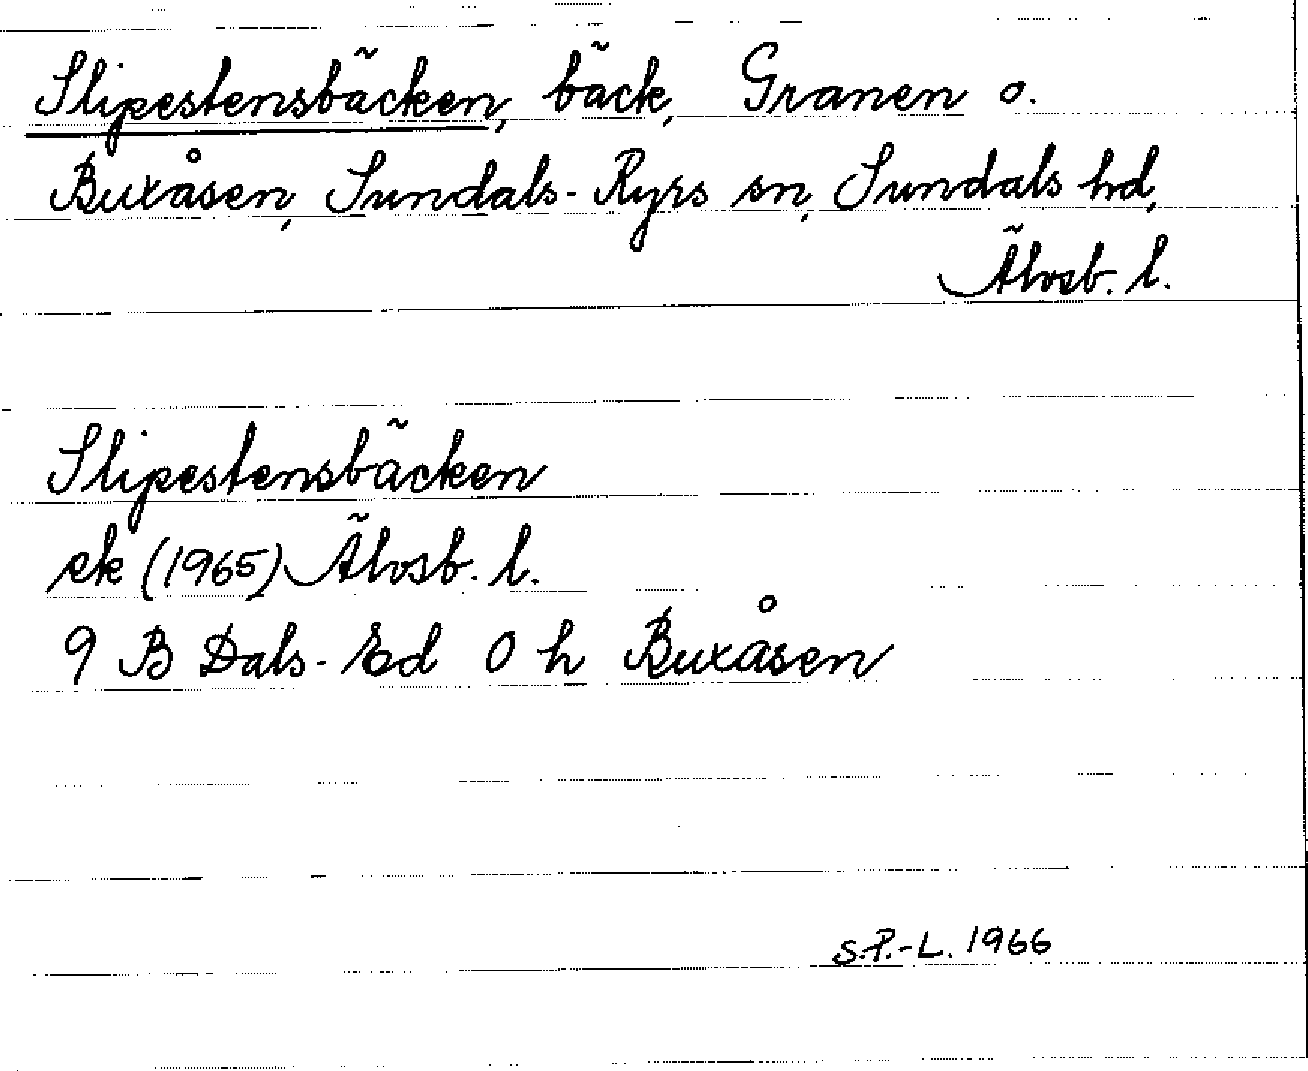 Slipestensbäcken, bäck, Granen o.
Buxåsen, Sundals-Ryrs sn, Sundals hd,
Älvsb. l.
Slipestensbäcken
ek (1965) Älvsb. l.
9 B Dals-Ed O h Buxåsen
S.P.-L. 1966